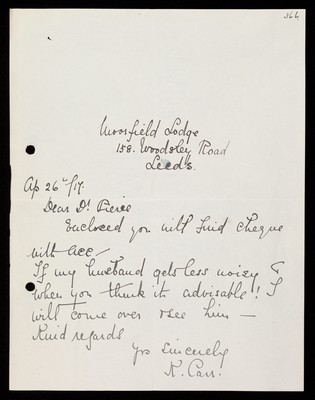 366
Moorfield Lodge
158. Woodsley Road
Leeds.
Ap 26th/17.
Dear Dr Pierce
Enclosed you will find cheque
with acc/
If my husband gets less noisy &
when you think its advisable! I
will come over & see him —
Kind regards
Yrs Sincerely
K. Carr.